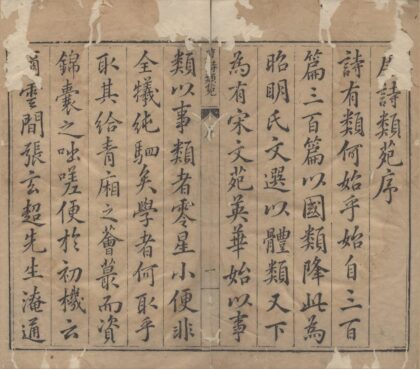 唐詩類苑序
詩有類何始乎始自三百
篇三百篇以國類降此為
昭明氏文選以體類又下
為有宋文苑英華始以事
詩類苑
一
類以事類者零星小便非
全犧純駟矣學者何取乎
取其給青廂之薈蕞而資
錦囊之咄嗟便於初機云
爾雲間張玄超先生淹通